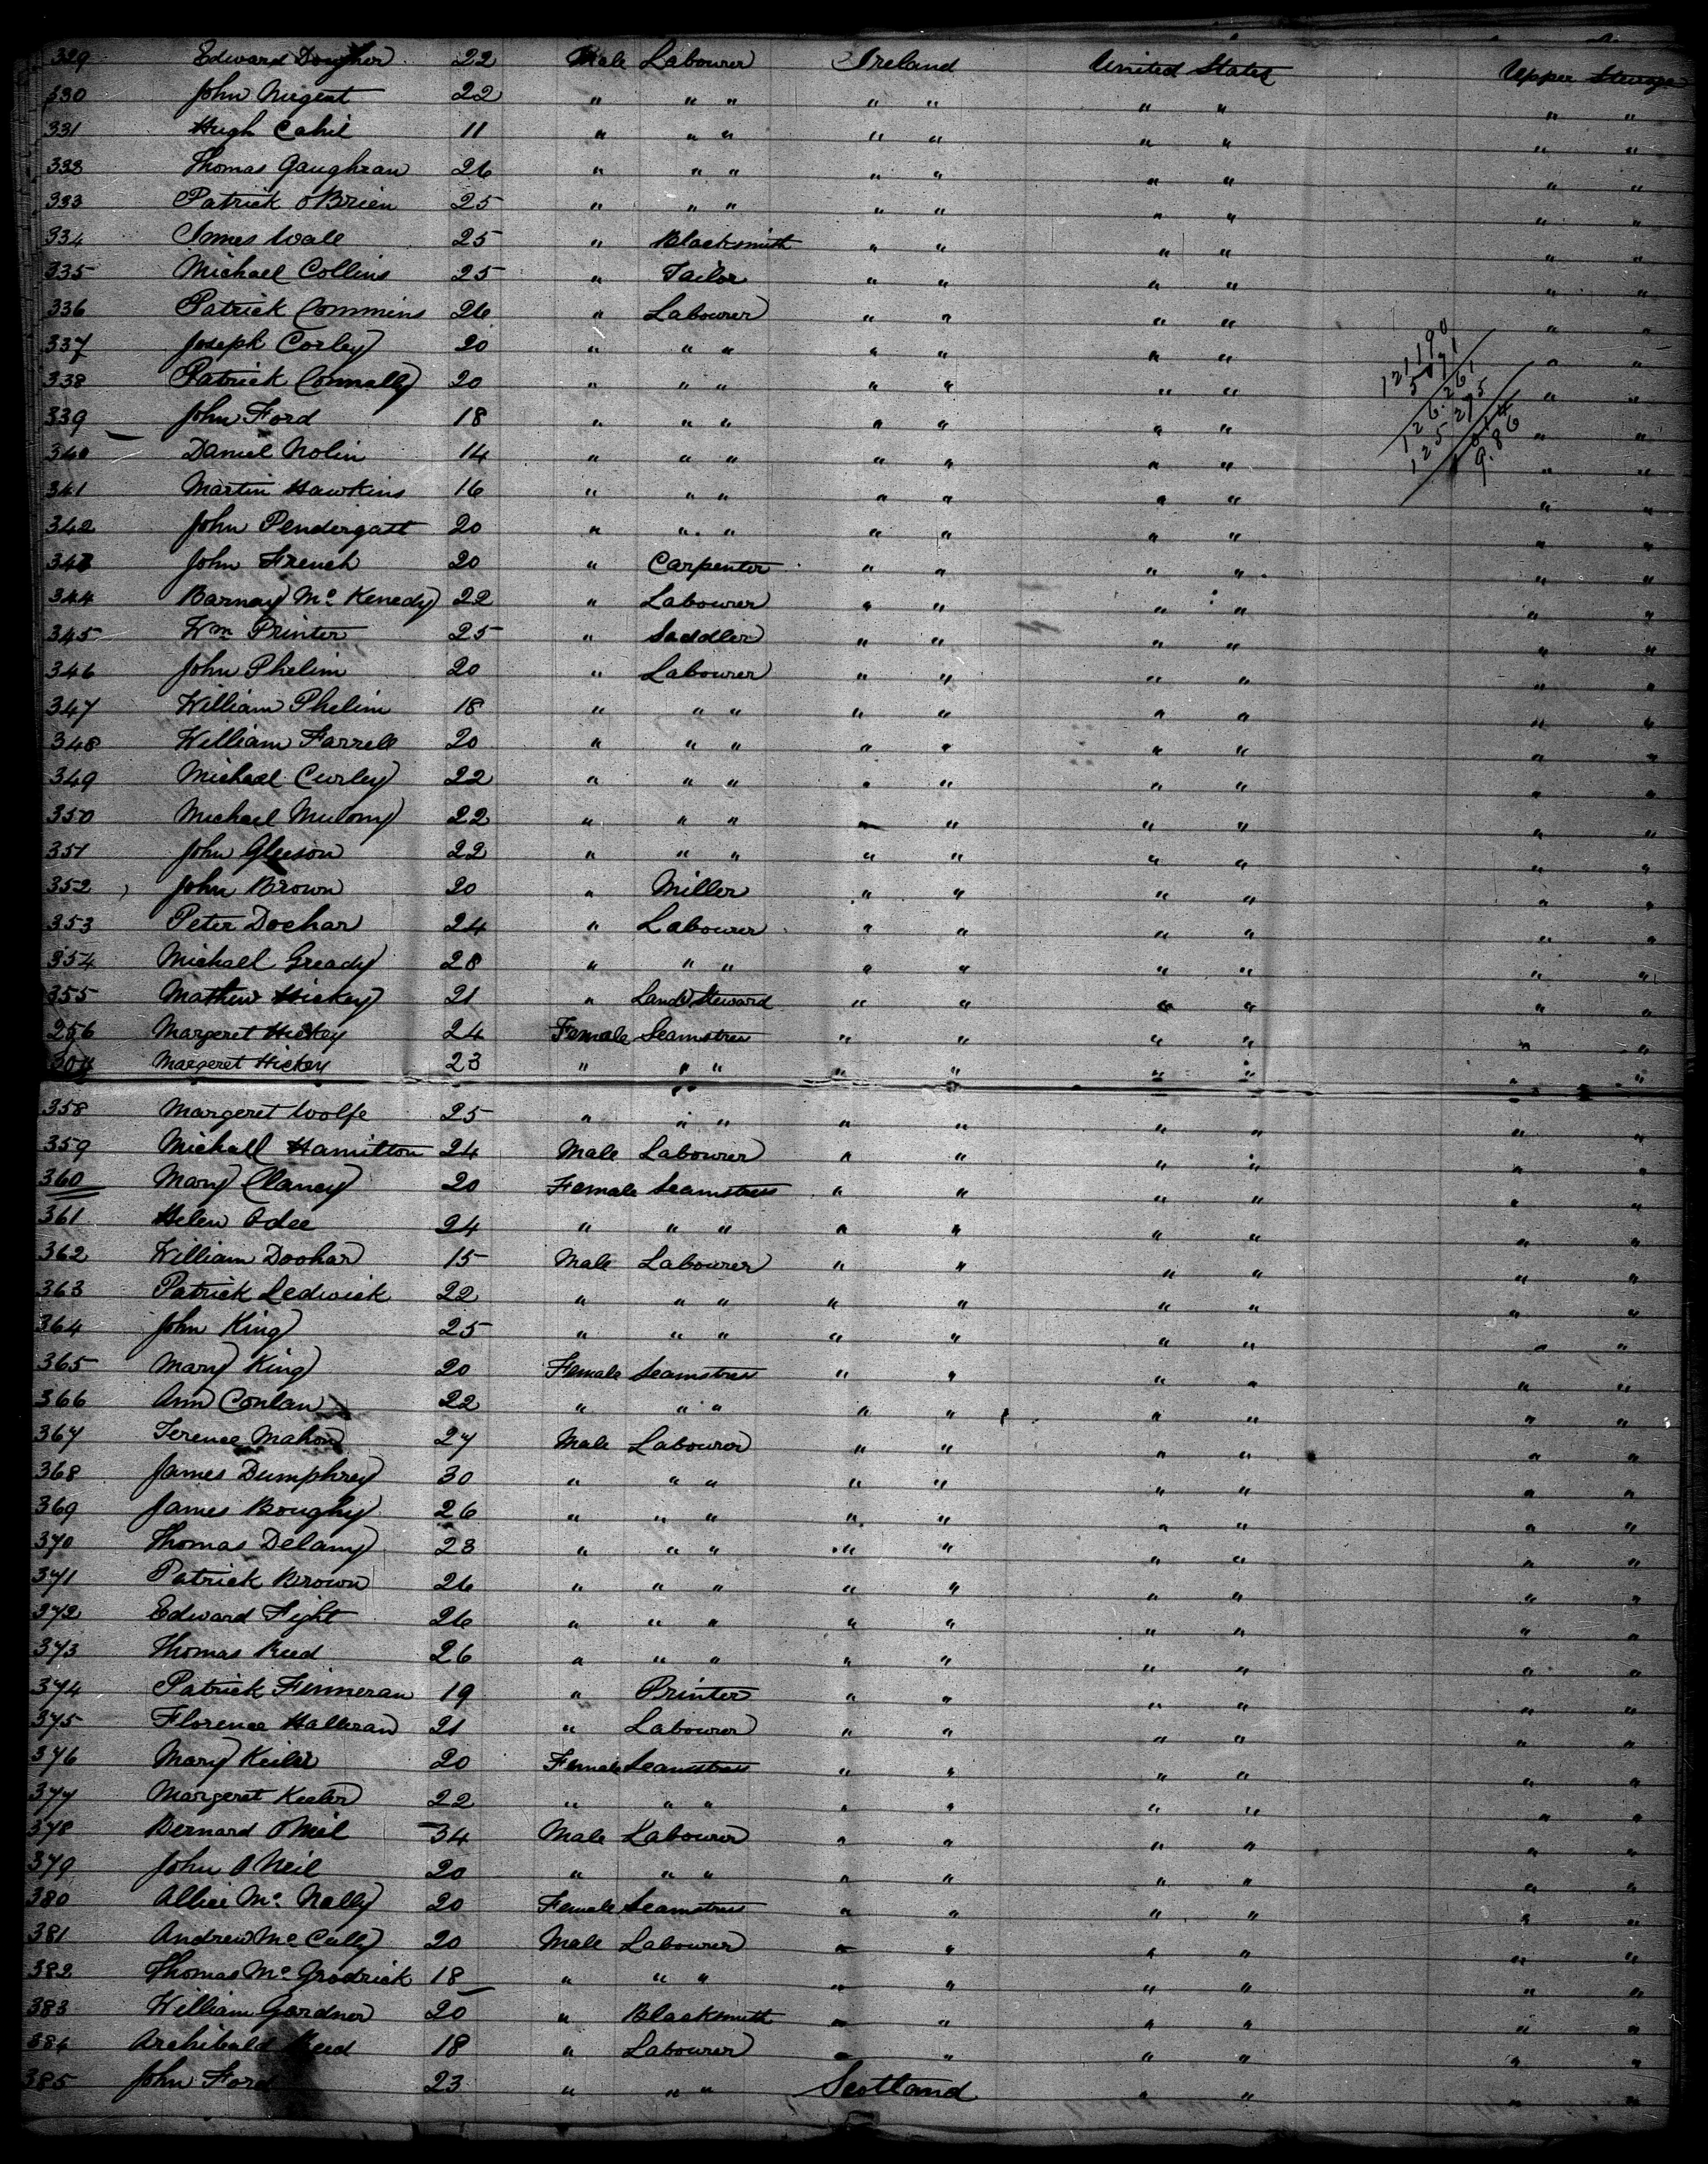 329 Edward Dougher 22 Male Labourer Ireland United States Upper Steerage
330 John Nugent 22 " " " " " " " " "
331 Hugh Cahil 11 " " " " " " " " "
333 Thomas Gaughran 26 " " " " " " " " "
333 Patrick OBrien 25 " " " " " " " " "
334 James Wall 25 " Blacksmith " " " " " "
335 Michael Collins 25 " Tailor " " " " " "
336 Patrick Commins 26 " Labourer " " " " " "
337 Joseph Corley 20 " " " " " " " " "
338 Patrick Connally 20 " " " " " " " " "
339 John Ford 18 " " " " " " " " "
340 Daniel Nolin 14 " " " " " " " " "
341 Martin Hawkins 16 " " " " " " " " "
342 John Pendergast 20 " " " " " " " " "
343 John French 20 " Carpenter " " " " " "
344 Barney Mc Kenedy 22 " Labourer " " " " " "
345 Wm Printer 25 " Saddler " " " " " "
346 John Phelim 20 " Labourer " " " " " "
347 William Phelim 18 " " " " " " " " "
348 William Farrell 20 " " " " " " " " "
349 Michael Curley 22 " " " " " " " " "
350 Michael Mulony 22 " " " " " " " " "
351 John Gleeson 22 " " " " " " " " "
352 John Brown 20 " Miller " " " " " "
353 Peter Dochar 24 " Labourer " " " " " "
354 Michael Gready 28 " " " " " " " " "
355 Mathew Hickey 21 " Land Steward " " " " " "
256 Margeret Hickey 24 Female Seamstress " " " " " "
Margeret Hickey 23 " " " " " " " " "
358 Margeret Wolfe 25 " " " " " " " " "
359 Michall Hamilton 24 Male Labourer " " " " " "
360 Mary Clancy 20 Female Seamstress " " " " " "
361 Helen Odee 24 " " " " " " " " "
362 William Doohar 15 Male Labourer " " " " " "
363 Patrick Ledwick 22 " " " " " " " " "
364 John King 25 " " " " " " " " "
365 Mary King 20 Female Seamstress " " " " " "
366 Ann Conlan 22 " " " " " " " " "
367 Terence Mahon 27 Male Labourer " " " " " "
368 James Dumphrey 30 " " " " " " " " "
369 James Boughy 26 " " " " " " " " "
370 Thomas Delamy 23 " " " " " " " " "
371 Patrick Brown 26 " " " " " " " " "
372 Edward Fight 26 " " " " " " " " "
373 Thomas Reed 26 " " " " " " " " "
374 Patrick Finneran 19 " Printer " " " " " "
375 Florence Halleran 21 " Labourer " " " " " "
376 Mary Keiler 20 Female Seamstress " " " " " "
377 Margeret Keeler 22 " " " " " " " " "
378 Bernard ONeil 34 Male Labourer " " " " " "
379 John O Neil 20 " " " " " " " " "
380 Allice Mc Nally 20 Female Seamstress " " " " " "
381 Andrew Mc Cully 20 Male Labourer " " " " " "
382 Thomas Mc Grodrick 18 " " " " " " " " "
383 William Gardner 20 " Blacksmith " " " " " "
384 Archibald Reed 18 " Labourer " " " " " "
385 John Ford 23 " " " Scotland " " " "